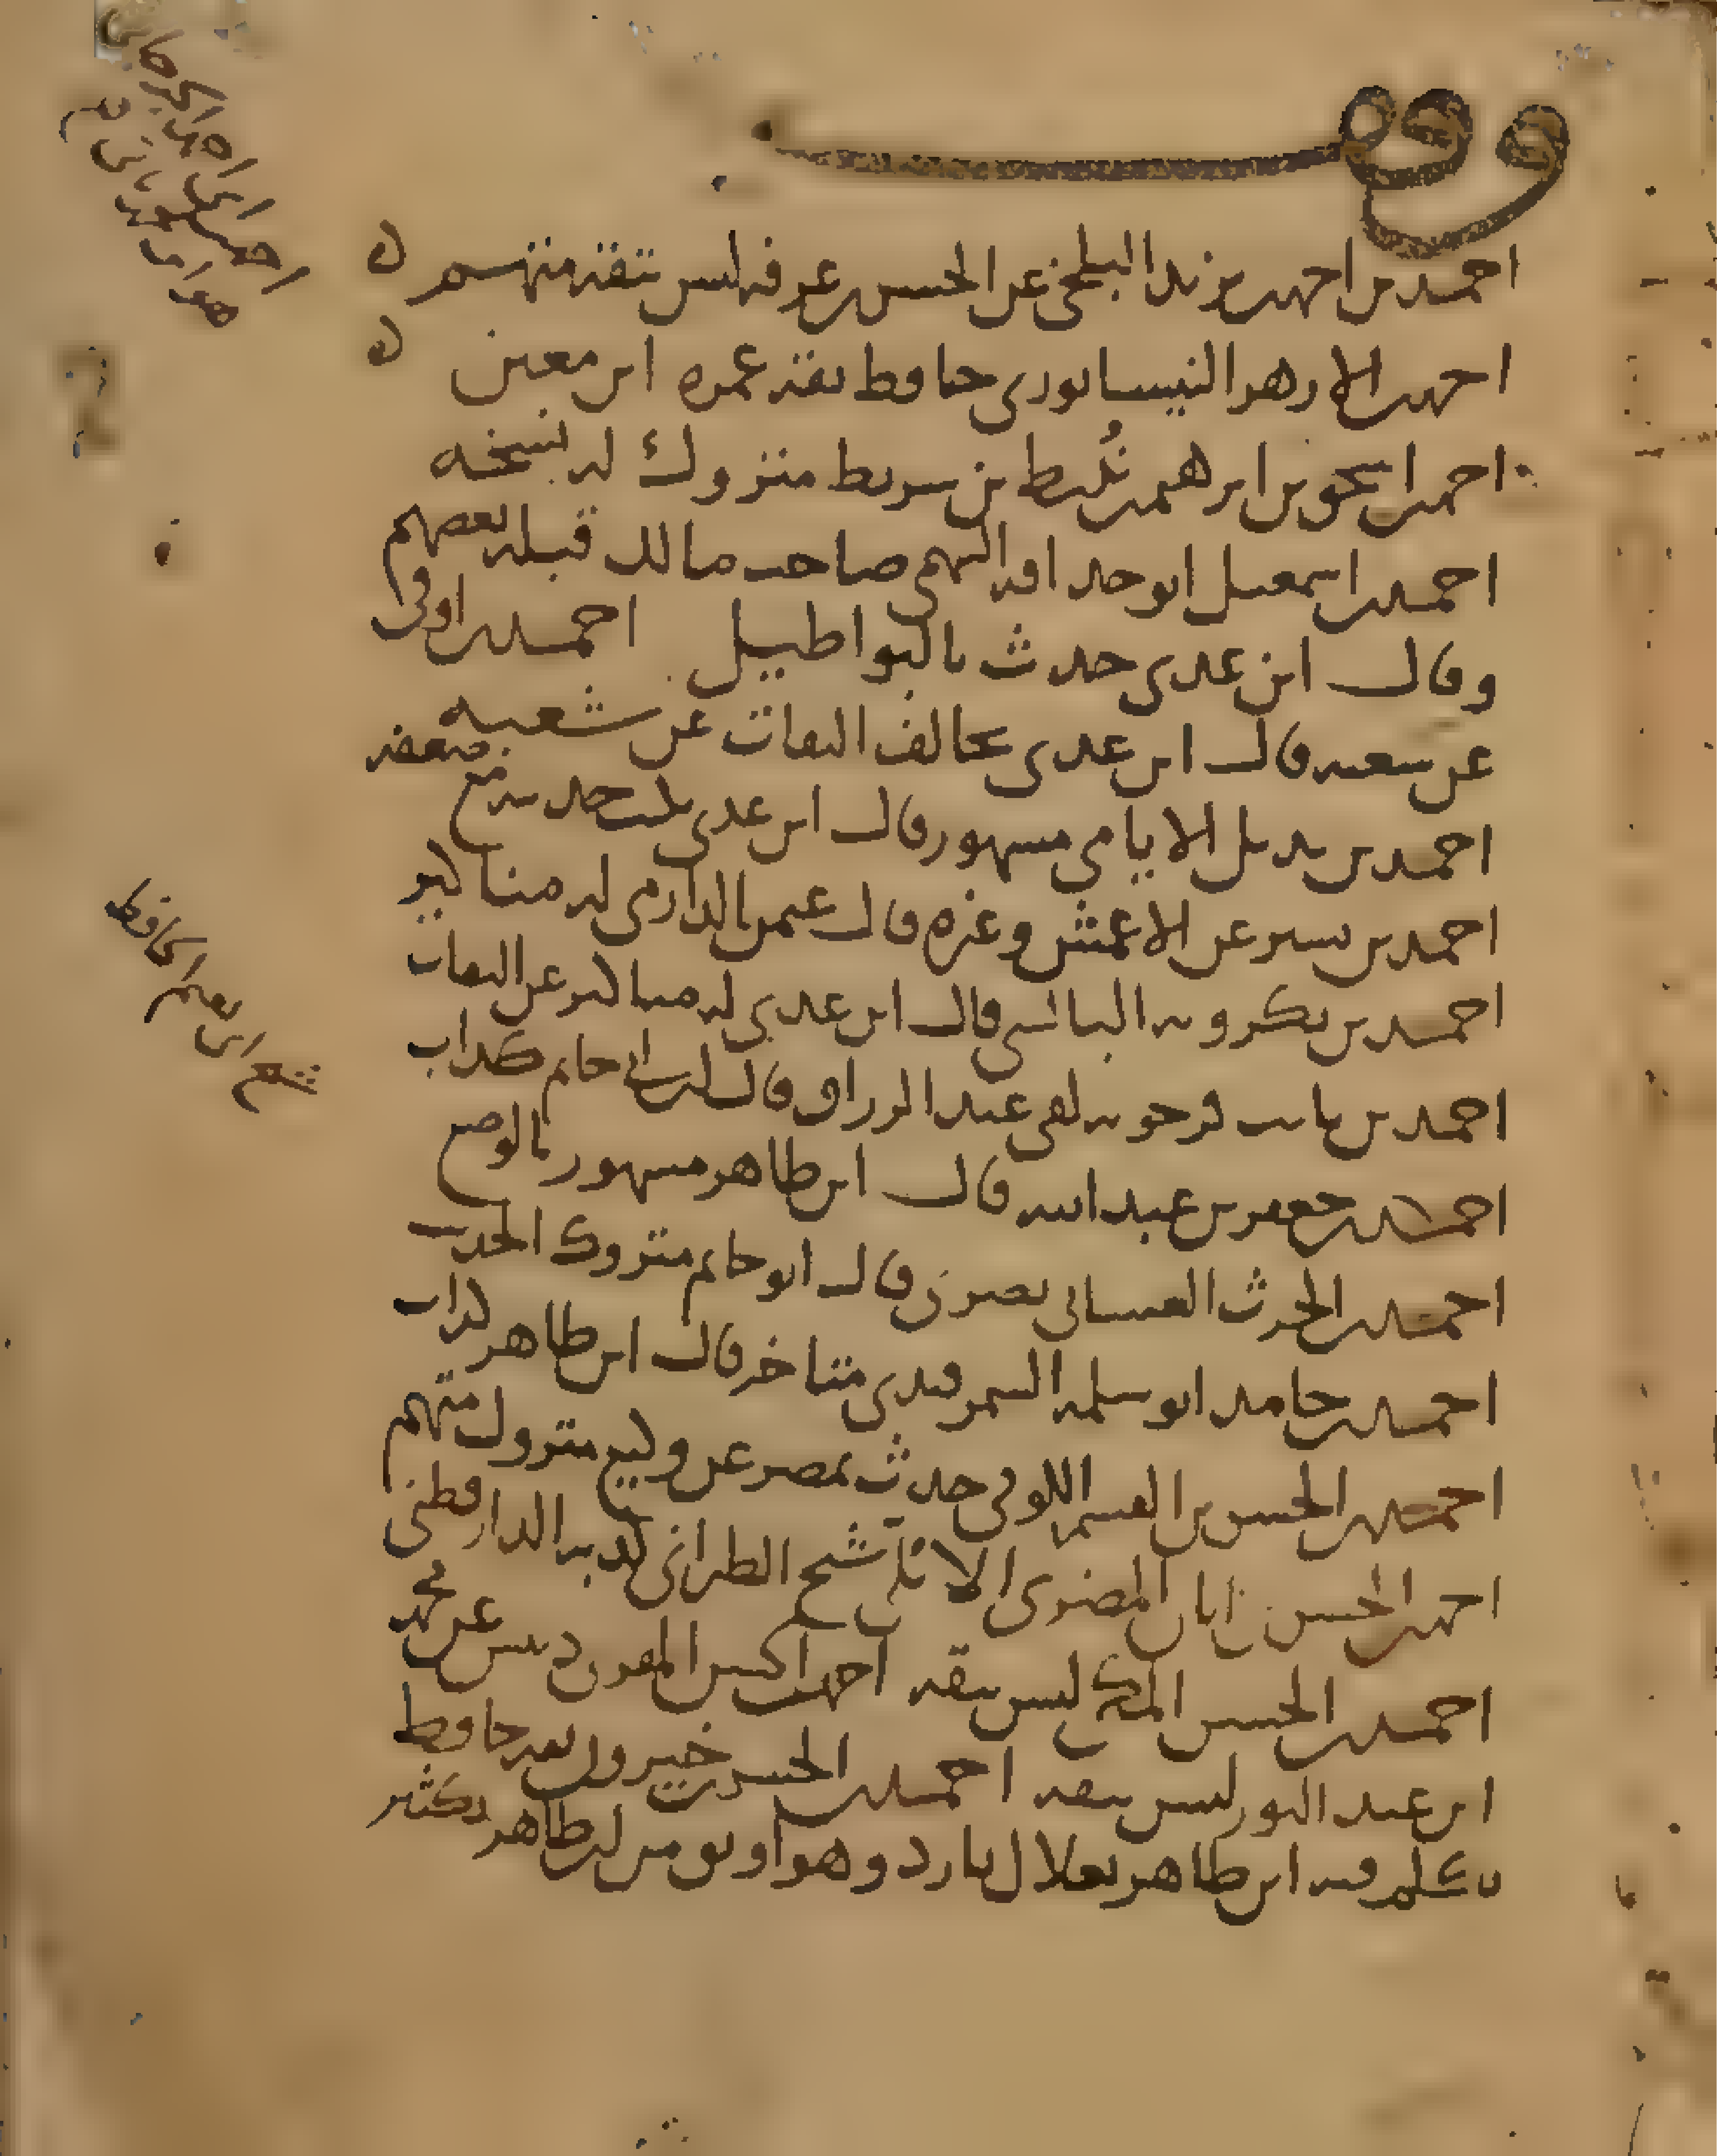 وقف
احمد بن احمد بن يزيد البلخي عن الحسن بن عرفه ليس بثقه متهم
احمد بن الازهر النيسابوري حافظ ثقه غمزه ابن معين
احمد بن اسحق بن ابرهيم بن نُبيط بن شريط متروك له نسخه
احمد بن اسمعيل ابو حذافه السهمي صاحب مالك قبله بعضهم
وقال ابن عدي حدث بالبواطيل احمد بن اوفى
عن شعبه قال ابن عدي يخالف الثقات عن شعبه
احمد بن بديل الايامي مشهور قال ابن عدي يكتب حديثه مع ضعفه
احمد بن بشير عن الاعمش وغيره قال عثمن الدارمي له مناكير
احمد بن بكرويه البالسي قال ابن عدي له مناكير عن الثقات
احمد بن ثابت فرخويه لقي عبد الرزاق قال ابن ابي حاتم كذاب
احمد بن جعفر بن عبد الله قال ابن طاهر مشهور بالوضع
احمد بن الحرث الغساني بصري قال ابو حاتم متروك الحديث
احمد بن حامد ابو سلمه السمرقندي متاخر قال ابن طاهر كذاب
احمد بن الحسن بن القسم الكوفي حدث بمصر عن وكيع متروك متهم
احمد بن الحسن بن ابان المضري الابلي شيخ الطبراني كذبه الدارقطني
احمد بن الحسن المكي ليس بثقه احمد بن الحسن المقري دبيس عن محمد
ابن عبد النور ليس بثقه احمد بن الحسن بن خيرون ثقه حافظ
تكلم فيه ابن طاهر بكلام بارد وهو اوثق من ابن طاهر بكثير
شيخ ابي نعيم الحافظ